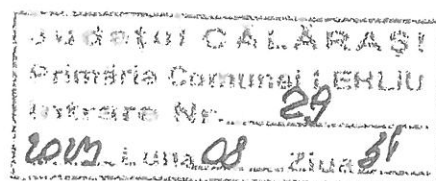 Județul CĂLĂRAȘI
Primăria Comunei LEHLIU
Intrare Nr. 29
Luna 08 Ziua 31